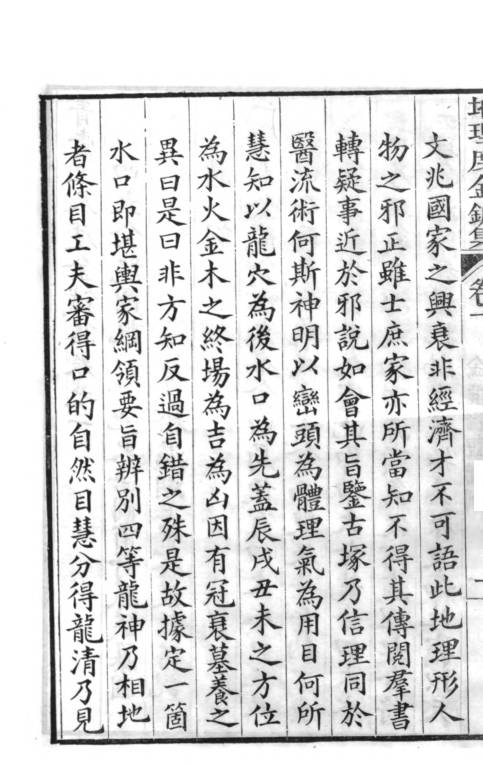 文兆國家之興衰非經濟才不可語此地理形人
物之邪正雖士庶家亦所當知不得其傳閱羣書
轉疑事近於邪說如會其旨鑒古塚乃信理同於
醫流術何斯神明以巒頭為體理氣為用目何所
慧知以龍穴為後水口為先蓋辰戌丑未之方位
為水火金木之終場為吉為凶因有冠衰墓養之
異曰是曰非方知反過自錯之殊是故據定一箇
水口即堪輿家綱領要旨辨別四等龍神乃相地
者條目工夫審得口的自然目慧分得龍清乃見